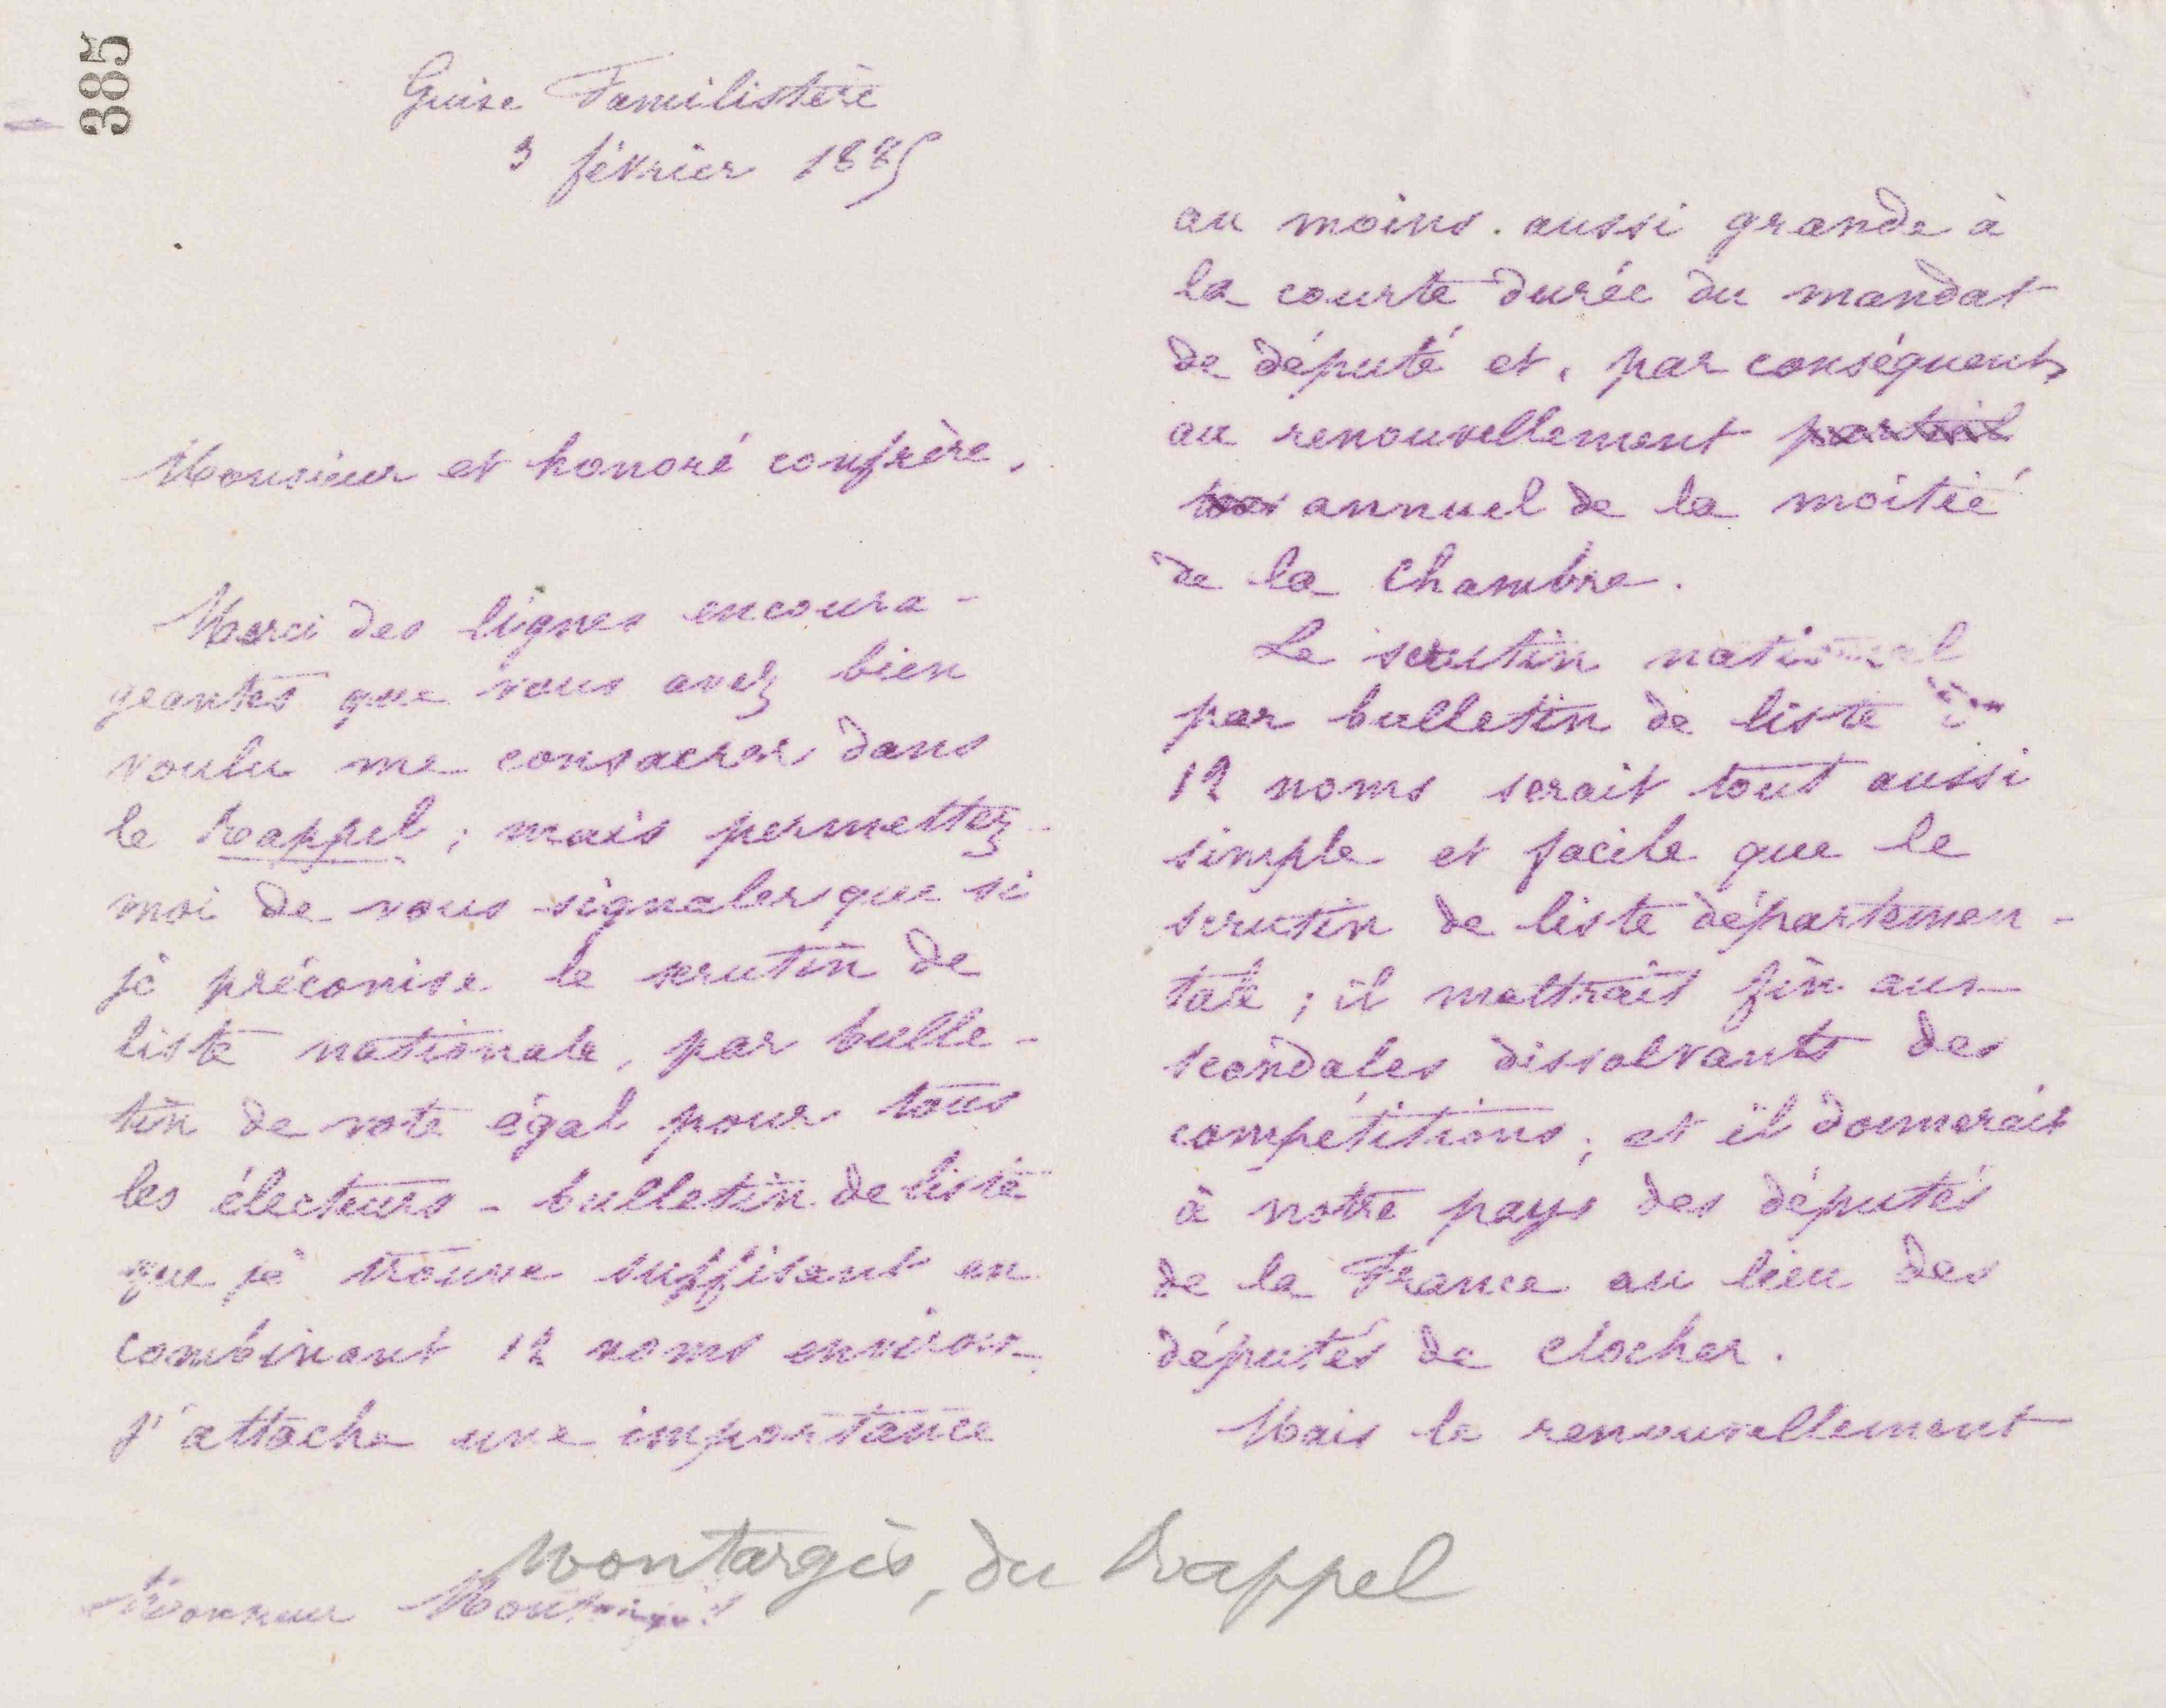 385
Guise Familistère
3 février 1885
Monsieur et honoré confrère,
Merci des lignes encoura-
geantes que vous avez bien
voulu me consacrer dans
le Rappel ; mais permettez-
moi de vous signaler que si
je préconise le scrutin de
liste nationale, par bulle-
tin de vote égal pour tous
les électeurs - bulletin de liste
que je trouve suffisant en
combinant 12 noms environ -
J'attache une importance
Monsieur Montargis
au moins aussi grande à
la courte durée du mandat
de député et, par conséquent,
au renouvellement partiel
annuel de la moitié
de la Chambre.
Le scrutin national
par bulletin de liste de
12 noms serait tout aussi
simple et facile que le
scrutin de liste départemen-
tale ; il mettrait fin aux
scandales dissolvants des
compétitions ; et il donnerait
à notre pays des députés
de la France au lieu des
députés de clocher.
Mais le renouvellement
Montargis, du Rappel